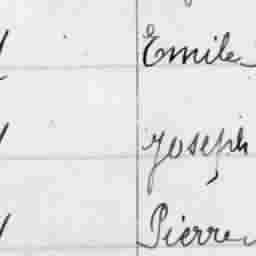 Emile
Joseph
Pierre